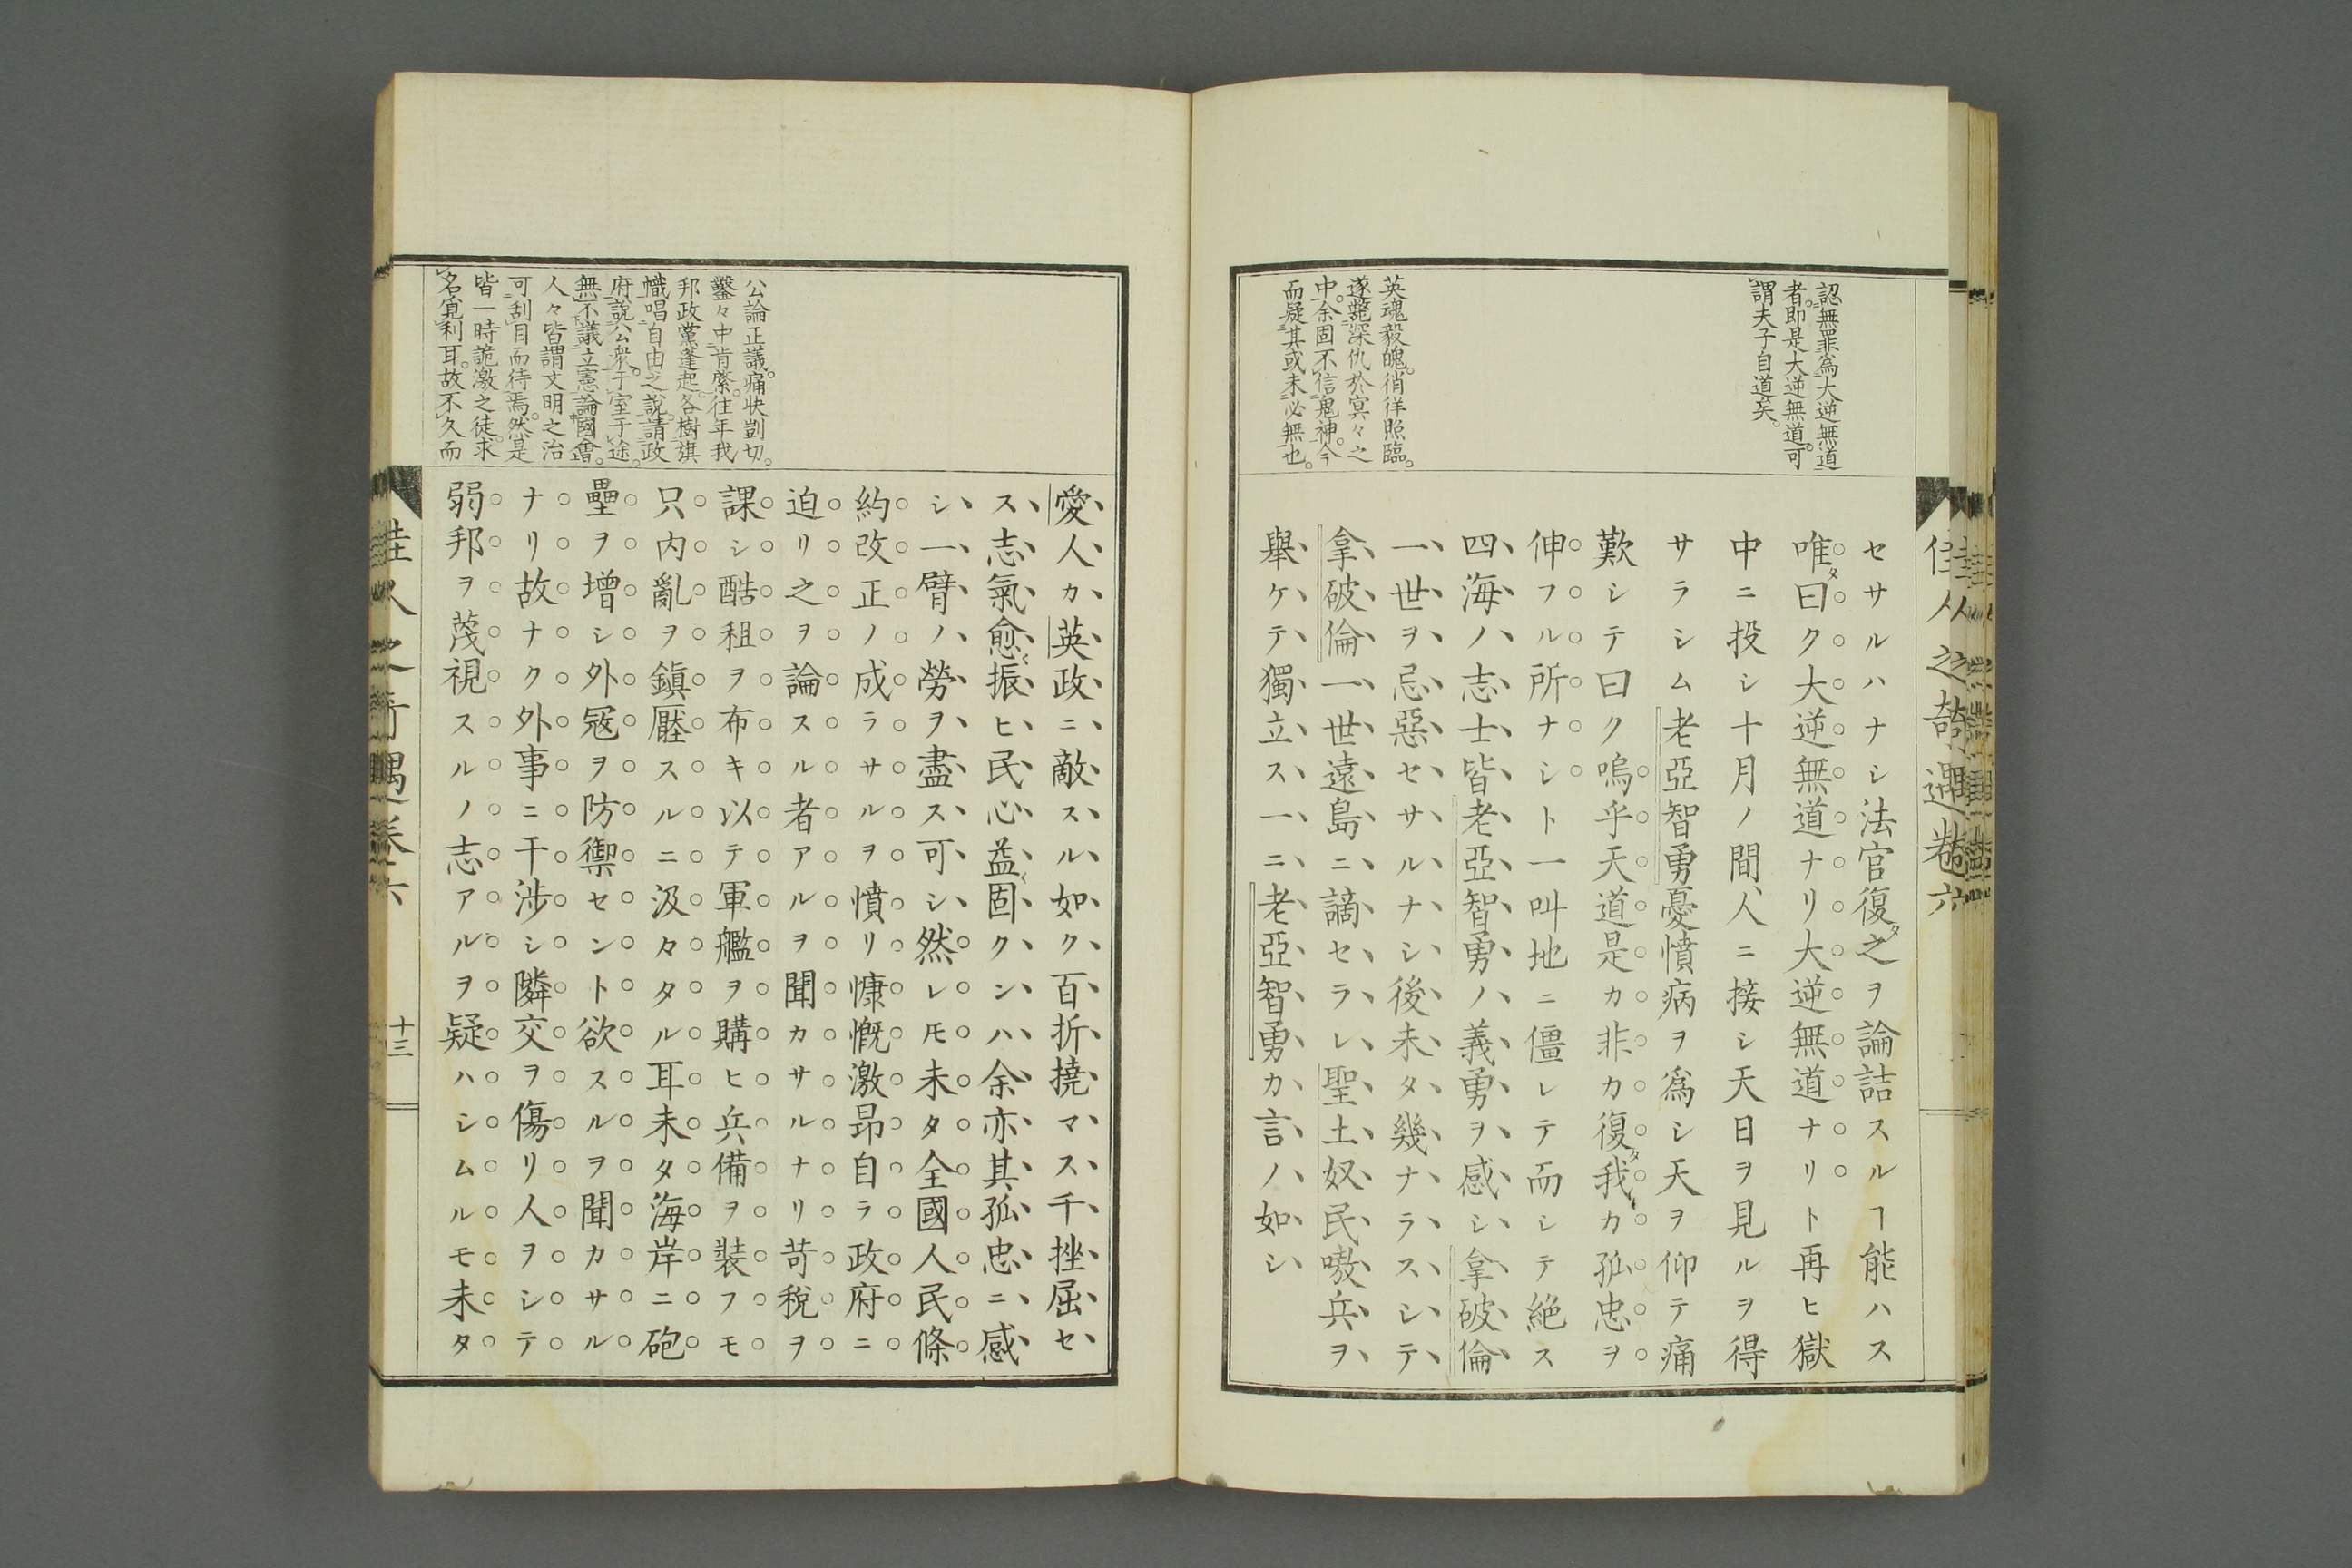 認無罪爲大逆無道
者。即是大逆無道。可
謂夫子自道矣。
英魂毅魄。徜徉照臨。
遂斃深仇於冥々之
中。余固不信鬼神。今
而疑其或未必無也。
佳人之奇遇卷六
セサルハナシ法官復タ之ヲ論詰スルヿ能ハス
唯タ曰ク大逆無道ナリ大逆無道ナリト再ヒ獄
中ニ投シ十月ノ間、人ニ接シ天日ヲ見ルヲ得
サラシム老亞智勇憂憤病ヲ爲シ天ヲ仰テ痛
歎シテ曰ク嗚乎天道是カ非カ復タ我カ孤忠ヲ
伸フル所ナシト一叫地ニ僵レテ而シテ絶ス
四海ノ志士皆老亞智勇ノ義勇ヲ感シ拿破倫
一世ヲ忌惡セサルナシ後未タ幾ナラスシテ
拿破倫一世遠島ニ謫セラレ聖土奴民嗷兵ヲ
擧ケテ獨立ス一ニ老亞智勇カ言ノ如シ
公論正議。痛快剴切。
鑿々中肯綮。往年我
邦政黨蓬起。各樹旗
幟唱自由之說。請政
府說公衆。于室于途。
無不議立憲論國會。
人々皆謂文明之治
可刮目而待焉。然是
皆一時詭激之徒。求
名寛利耳。故不久而
愛人カ英政ニ敵スル如ク百折撓マス千挫屈セ
ス志氣愈振ヒ民心益固クンハ余亦其孤忠ニ感
シ一臂ノ勞ヲ盡ス可シ然レ𪜈未タ全國人民條
約改正ノ成ラサルヲ憤リ慷慨激昂自ラ政府ニ
迫リ之ヲ論スル者アルヲ聞カサルナリ苛稅ヲ
課シ酷租ヲ布キ以テ軍艦ヲ購ヒ兵備ヲ裝フモ
只内亂ヲ鎭壓スルニ汲々タル耳未タ海岸ニ砲
壘ヲ增シ外寇ヲ防禦セント欲スルヲ聞カサル
ナリ故ナク外事ニ干涉シ隣交ヲ傷リ人ヲシテ
弱邦ヲ蔑視スルノ志アルヲ疑ハシムルモ未タ
佳人之奇遇卷六
十三